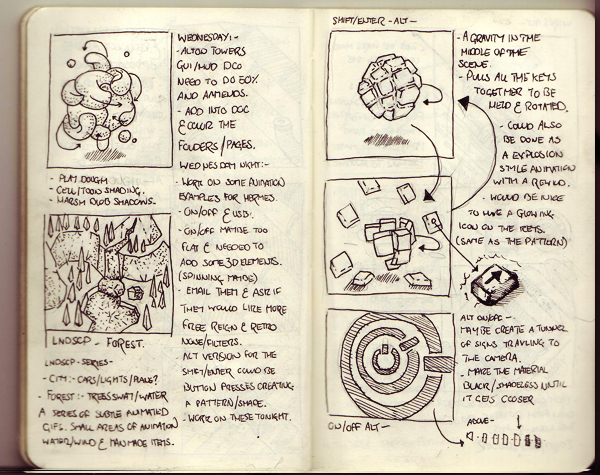 - PLAY DOUGH
- CELL/TOON SHADING.
- HARSH BLOB SHADOWS.
LNDSCP - FOREST.
LNDSCP - SERIES-
- CITY:- CARS/LIGHTS/PLANE?
- FOREST:- TREES SWAY/WATER
A SERIES OF SUBTLE ANIMATED
GIFS. SMALL AREAS OF ANIMATION
WATER/WIND & MAN MADE ITEMS.
WEDNESDAY:-
- ALTON TOWERS
GUI/HUD DOC
NEED TO DO 50%
AND AMMENDS.
- ADD INTO DOC
& COLOR THE
FOLDERS/PAGES.
WEDNESDAY NIGHT:-
- WORK ON SOME ANIMATION
EXAMPLES FOR HERMES.
- ON/OFF & USB.
- ON/OFF MAYBE TOO
FLAT & NEEDED TO
ADD SOME 3D ELEMENTS.
(SPINNING MAYBE)
- EMAIL THEM & ASK IF
THEY WOULD LIKE MORE
FREE REIGN & RETRO
NOISE/FILTERS.
- ALT VERSION FOR THE
SHIFT/ENTER COULD BE
BUTTON PRESSES CREATING
A PATTERN/SHAPE.
- WORK ON THESE TONIGHT.
SHIFT/ENTER - ALT -
- A GRAVITY IN THE
MIDDLE OF THE
SCENE.
- PULLS ALL THE KEYS
TOGETHER TO BE
HELD & ROTATED.
- COULD ALSO
BE DONE AS
A EXPLOSION
STYLE ANIMATION
WITH A REWIND.
- WOULD BE NICE
TO HAVE A GLOWING
ICON ON THE KEYS.
(SAME AS THE PATTERN)
ALT ON/OFF:-
MAYBE CREATE A TUNNEL
OF SIGNS TRAVLING TO
THE CAMERA.
- MAKE THE MATERIAL
BLACK/SHADELESS UNTIL
IT GETS CLOSER
ABOVE-
ON/OFF ALT -